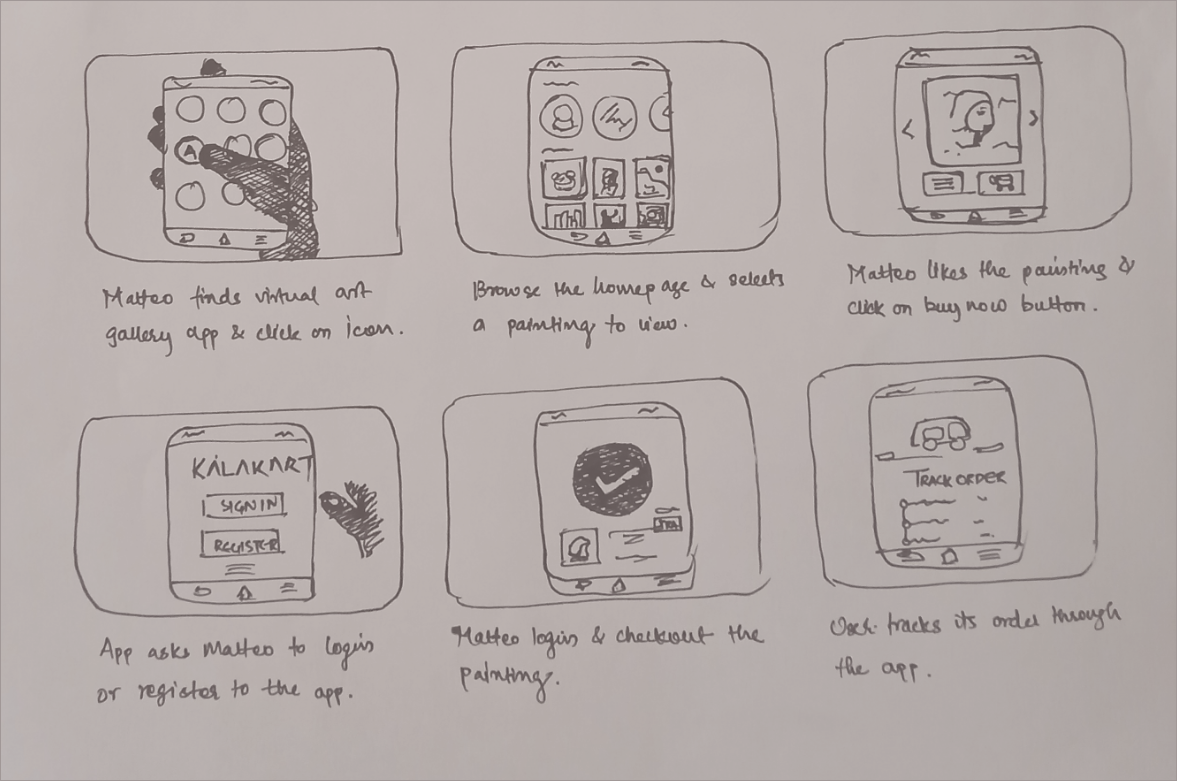 A
Matteo finds virtual art
gallery app & click on icon.
Browse the homepage & selects
a painting to view.
Matteo likes the painting &
click on buy now button.
KALAKART
SIGN IN
REGISTER
App asks Matteo to login
or register to the app.
Matteo login & checkout the
painting.
TRACK ORDER
User tracks its order through
the app.